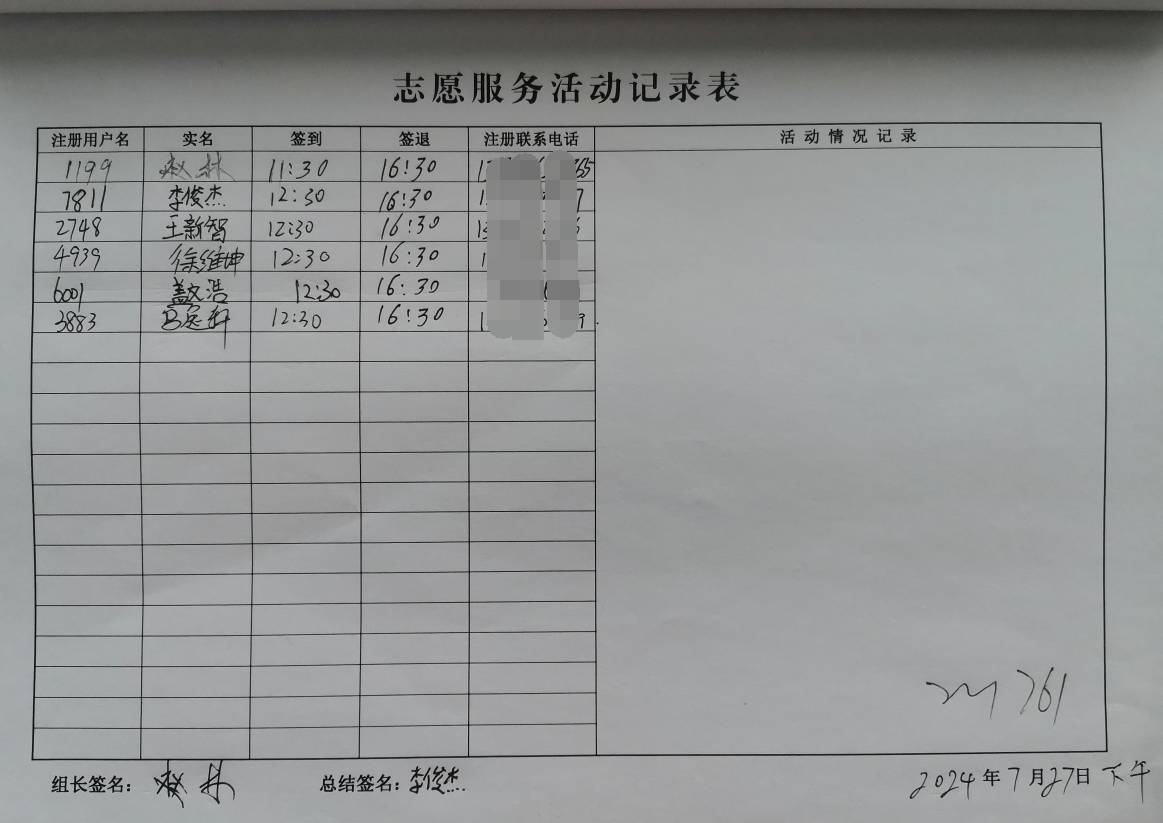 志愿服务活动记录表
注册用户名 实名 签到 签退 注册联系电话 活动情况记录
1199 赵林 11:30 16:30
7811 李俊杰 12:30 16:30
2748 王新智 12:30 16:30
4939 徐维坤 12:30 16:30
6001 盖文浩 12:30 16:30
3883 12:30 16:30
761
组长签名: 赵林 总结签名: 李俊杰
2024年7月27日下午